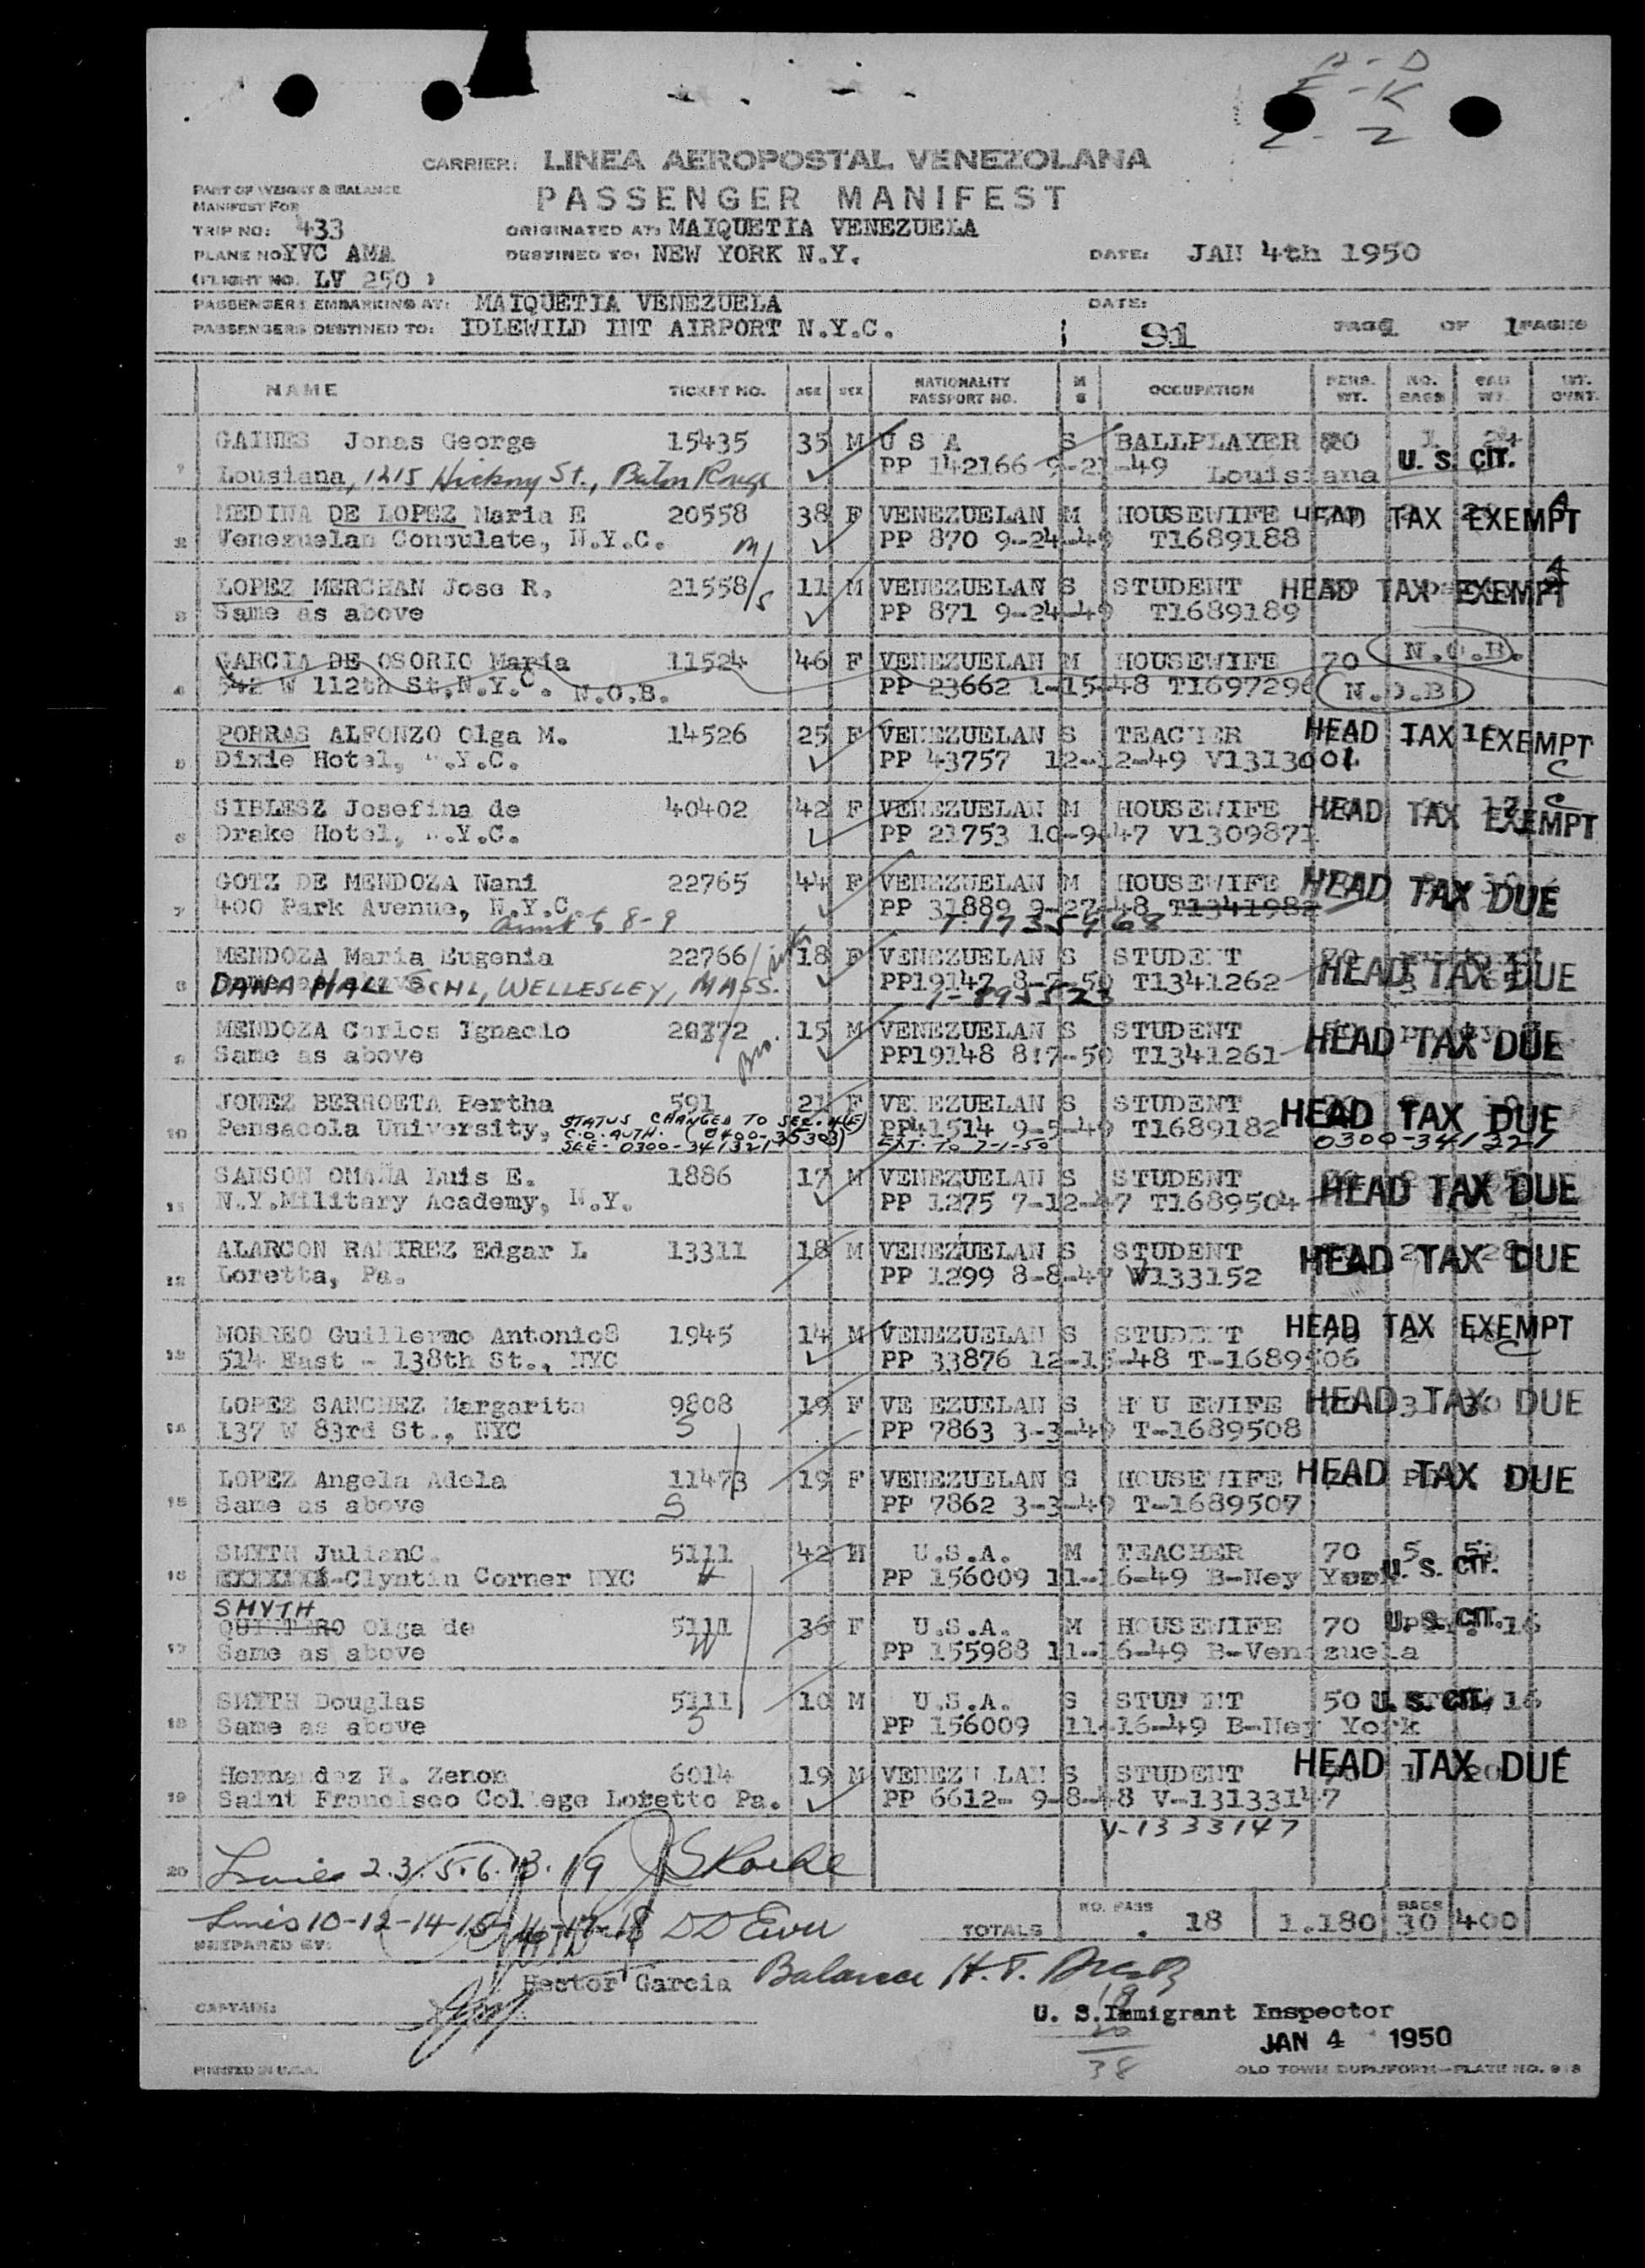 A - D
E - K
L - Z
CARRIER: LINEA AEROPOSTAL VENEZOLANA
PART OF WEIGHT & BALANCE
MANIFEST FOR
PASSENGER MANIFEST
TRIP NO: 433
ORIGINATED AT: MAIQUETIA VENEZUELA
PLANE NO YVC AMA
DESTINED TO: NEW YORK N.Y.
DATE: JAN 4th 1950
(FLIGHT NO. LV 250 )
PASSENGERS EMBARKING AT: MAIQUETIA VENEZUELA
DATE:
PASSENGERS DESTINED TO: IDLEWILD INT AIRPORT N.Y.C.
91
PAGE 1 OF 1 PAGES
NAME TICKET NO. AGE SEX NATIONALITY PASSPORT NO. M S OCCUPATION PERS. WT. NO. BAGS BAG WT. INT. OVNT.
GAINES Jonas George 15435 35 M U S A S BALLPLAYER 80 1 24
1 Lousiana, 1215 Hickory St., Baton Rouge PP 142166 9-21-49 Louisiana U. S. CIT.
MEDINA DE LOPEZ Maria E 20558 38 F VENEZUELAN M HOUSEWIFE HEAD TAX EXEMPT
2 Venezuelan Consulate, N.Y.C. PP 870 9-24-49 T1689188
LOPEZ MERCHAN Jose R. 21558 11 M VENEZUELAN S STUDENT HEAD TAX EXEMPT
3 Same as above PP 871 9-24-49 T1689189
GARCIA DE OSORIO Maria 11524 46 F VENEZUELAN M HOUSEWIFE 70 N.O.B.
4 542 W 112th St,N.Y.C. N.O.B. PP 23662 1-15-48 T1697296 N.O.B
PORRAS ALFONZO Olga M. 14526 25 F VENEZUELAN S TEACHER HEAD TAX EXEMPT
5 Dixie Hotel, .Y.C. PP 43757 12-12-49 V1313001 C
SIBLESZ Josefina de 40402 42 F VENEZUELAN M HOUSEWIFE HEAD TAX EXEMPT C
6 Drake Hotel, .Y.C. PP 21753 10-9-47 V1309871
GOTZ DE MENDOZA Nani 22765 44 F VENEZUELAN M HOUSEWIFE HEAD TAX DUE
7 400 Park Avenue, N.Y.C. PP 31889 9-27-48 T1341982
Aunt to 8-9
MENDOZA Maria Eugenia 22766 18 F VENEZUELAN S STUDENT HEAD TAX DUE
8 DANA HALL SCHL, WELLESLEY, MASS. PP19147 8-7-50 T1341262
T-895523
MENDOZA Carlos Ignacio 20372 Bro. 15 M VENEZUELAN S STUDENT HEAD TAX DUE
9 Same as above PP19148 8:7-50 T1341261
JONEZ BERROETA Bertha 591 21 F VE EZUELAN S STUDENT HEAD TAX DUE
STATUS CHANGED TO SEC. 4(E)
10 Pensacola University, C.O. AUTH. (0400-35303) PP41514 9-5-49 T1689182 0300-341321
SEE- 0300-341321 EXT. TO 7-1-50
SANSON OMAÑA Luis E. 1886 17 M VENEZUELAN S STUDENT HEAD TAX DUE
11 N.Y.Military Academy, N.Y. PP 1275 7-12-47 T1689504
ALARCON RAMIREZ Edgar L 13311 18 M VENEZUELAN S STUDENT HEAD TAX DUE
12 Loretta, Pa. PP 1299 8-8-47 V133152
MORREO Guillermo AntonioS 1945 14 M VENEZUELAN S STUDENT HEAD TAX EXEMPT
13 514 East - 138th St., NYC PP 33876 12-15-48 T-1689506 C
LOPEZ SANCHEZ Margarita 9808 19 F VE EZUELAN S H U EWIFE HEAD TAX DUE
14 137 W 83rd St., NYC S PP 7863 3-3-49 T-1689508
LOPEZ Angela Adela 11473 19 F VENEZUELAN S HOUSEWIFE HEAD TAX DUE
15 Same as above S PP 7862 3-3-49 T-1689507
SMYTH JulianC. 5111 42 M U.S.A. M TEACHER 70 5 53
16 -Clyntin Corner NYC H PP 156009 11-16-49 B-Ney York U. S. CIT.
SMYTH
QUINTERO Olga de 5111 36 F U.S.A. M HOUSEWIFE 70 U. S. CIT. 16
17 Same as above W PP 155988 11-16-49 B-Venezuela
SMYTH Douglas 5111 10 M U.S.A. S STUD NT 50 U. S. CIT. 16
18 Same as above S PP 156009 11-16-49 B-Ney York
Hernandez R. Zenon 6014 19 M VENEZU LAN S STUDENT HEAD TAX DUE
19 Saint Francisco College Loretto Pa. PP 6612- 9-8-48 V-13133147
V-1333147
20 Lines 2.3.5.6.13.19
Lines 10-12-14-15-16-17-18
TOTALS NO. PASS 18 1.180 BAGS 30 400
PREPARED BY:
Hector Garcia Balance H.T.
CAPTAIN:
18
U. S. Immigrant Inspector
20
JAN 4 1950
38
PRINTED IN U.S.A.
OLD TOWN DUPLIFORM—PLATE NO. 918